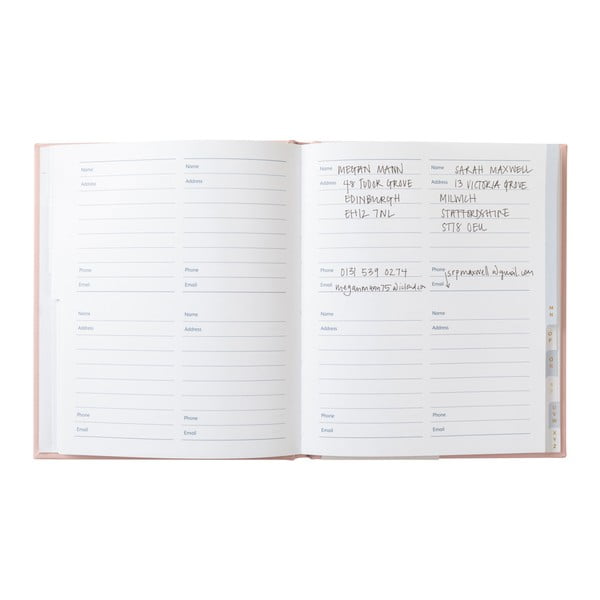 Name
Address
Phone
Email
Name
Address
Phone
Email
Name
Address
Phone
Email
Name
Address
Phone
Email
Name MEGAN MANN
Address 48 TUDOR GROVE
EDINBURGH
EH12 7NL
Phone 0131 539 0274
Email
Name SARAH MAXWELL
Address 13 VICTORIA GROVE
MILWICH
STAFFORDSHIRE
ST78 0EU
Phone srpmaxwell@gmail.com
Email
Name
Address
Phone
Email
Name
Address
Phone
Email
M N
O P
U V W
X Y Z